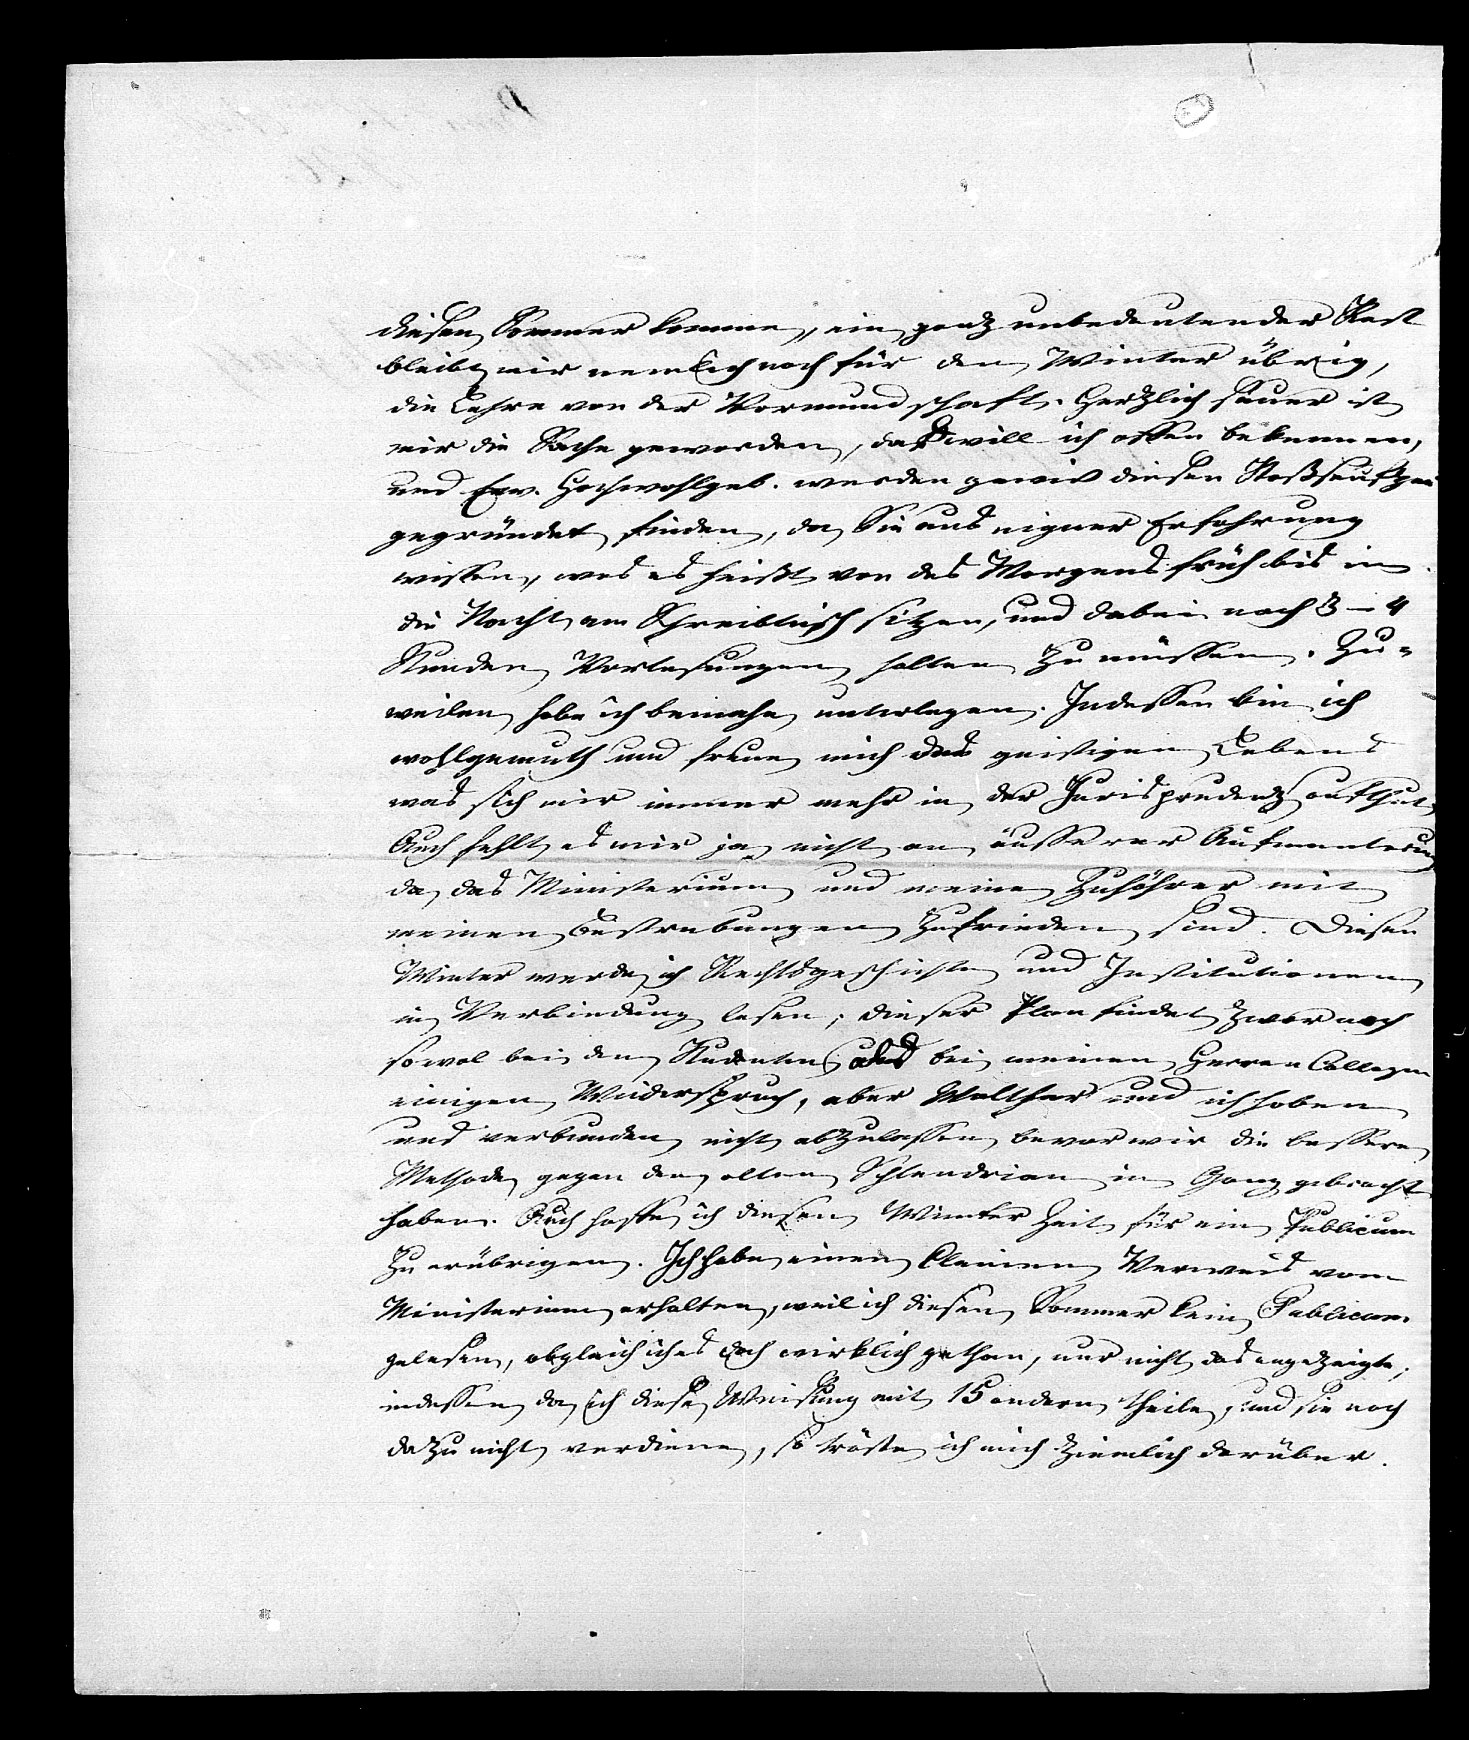 diesen Sommer komme, ein ganz unbedeutender Rest
bleibt mir nemlich noch für den Winter übrig,
die Lehre von der Vormundschaft. Herzlich sauer ist
mir die Sache geworden, das will ich offen bekennen,
und Ew. Hochwohlgeb. werden gewis diesen Stoßseufzer
gegründet finden, da Sie aus eigner Erfahrung
wissen, was es heißt von des Morgens früh bis in
die Nacht am Schreibtisch sitzen, und dabei noch 3–4
Stunden Vorlesungen halten zu müssen. Zu-
weilen habe ich beinahe unterlegen. Indessen bin ich
wohlgemuth und freue mich des geistigen Lebens
was sich mir immer mehr in der Jurisprudenz aufthut,
Auch fehlt es mir ja nicht an äusserer Aufmunterung
da das Ministerium und meine Zuhörer mit
meinen Bestrebungen zufrieden sind. Diesen
Winter werde ich Rechtsgeschichte und Institutionen
in Verbindung lesen; dieser Plan findet zwar noch
sowol bei den Studenten als bei meinen Herren Collegen
einigen Widerspruch, aber Walther und ich haben
uns verbunden nicht abzulassen, bevor wir die bessere
Methode gegen den alten Schlendrian in Gang gebracht
haben. Auch hoffe ich diesen Winter Zeit für ein Publicum
zu erübrigen. Ich habe einen kleinen Verweis vom
Ministerium erhalten, weil ich diesen Sommer kein Publicum
gelesen, obgleich ich es doch wirklich gethan, nur nicht das angezeigte;
indessen da ich diese Weisung mit 15 andern theile, und sie noch
dazu nicht verdiene, so tröste ich mich ziemlich darüber.